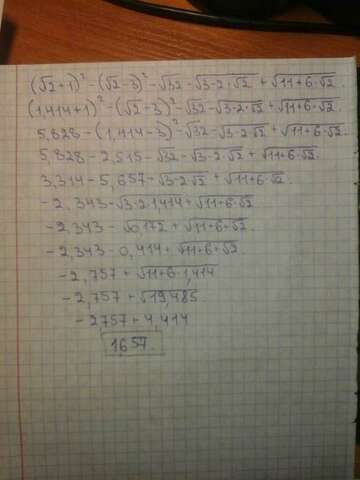 (√2+1)² - (√2-3)² - √32 - √3-2·√2 + √11+6·√2.
(1,414+1)² - (√2-3)² - √32 - √3-2·√2 + √11+6·√2.
5,828 - (1,414-3)² - √32 - √3-2·√2 + √11+6·√2.
5,828 - 2,515 - √32 - √3-2·√2 + √11+6·√2.
3,314 - 5,657 - √3-2·√2 + √11+6·√2.
-2,343 - √3-2·1,414 + √11+6·√2
-2,343 - √0,172 + √11+6·√2.
-2,343 - 0,414 + √11+6·√2
-2,757 + √11+6·1,414
-2,757 + √19,485.
-2757 + 4,414
1657.